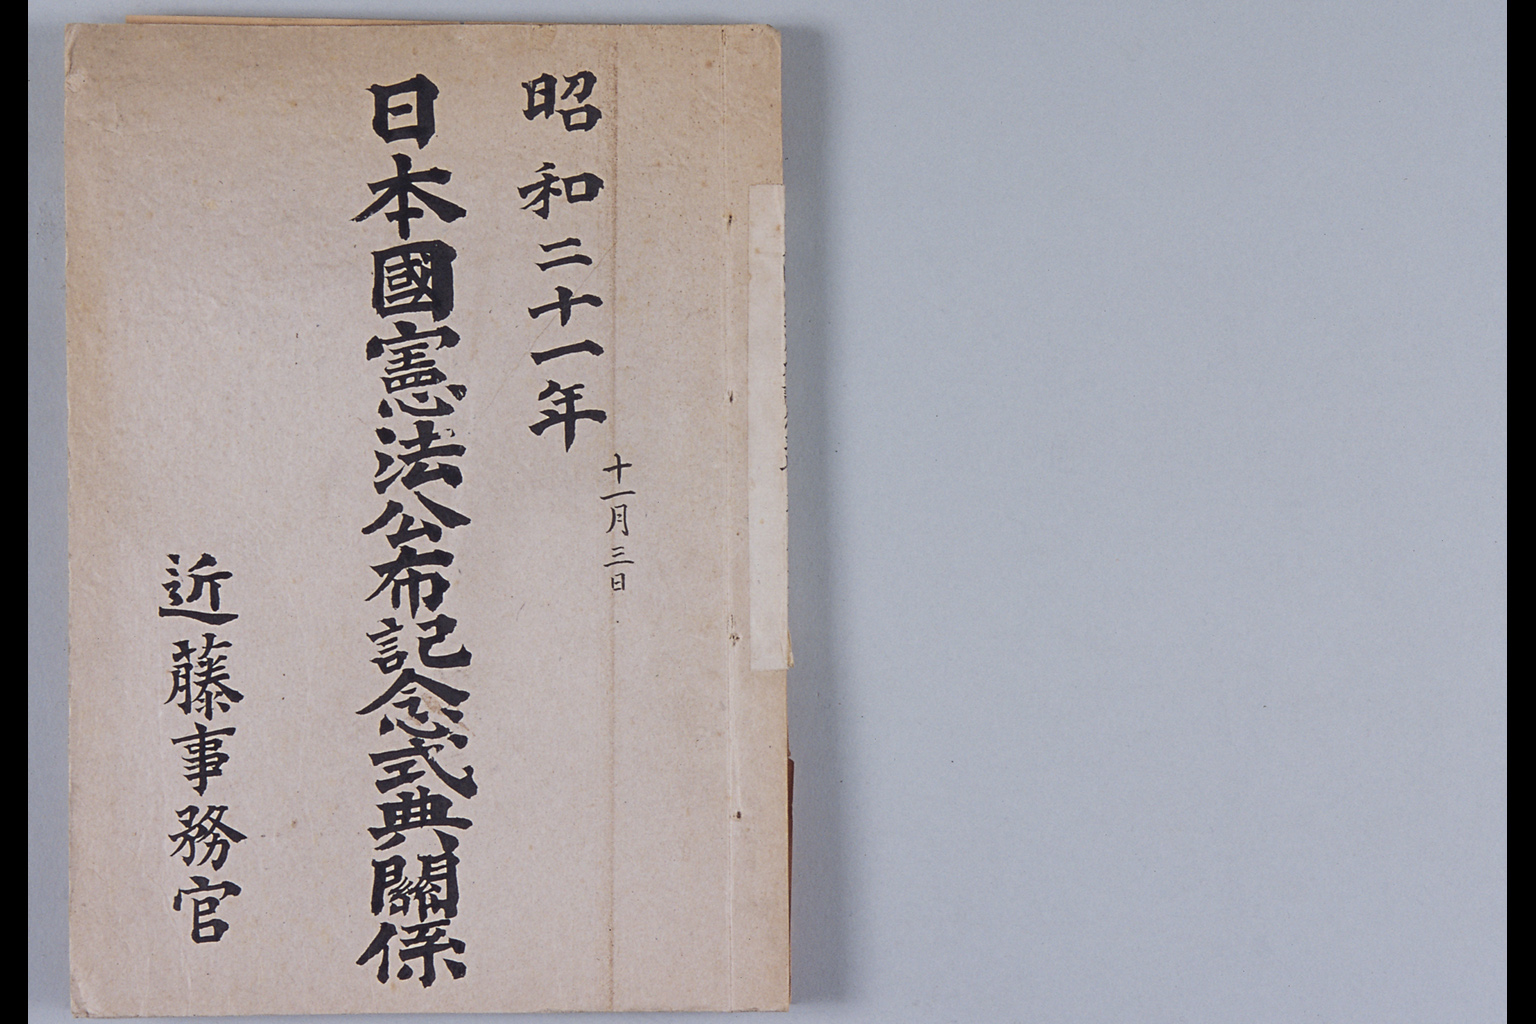 十一月三日
昭和二十一年
日本國憲法公布記念式典關係
近藤事務官